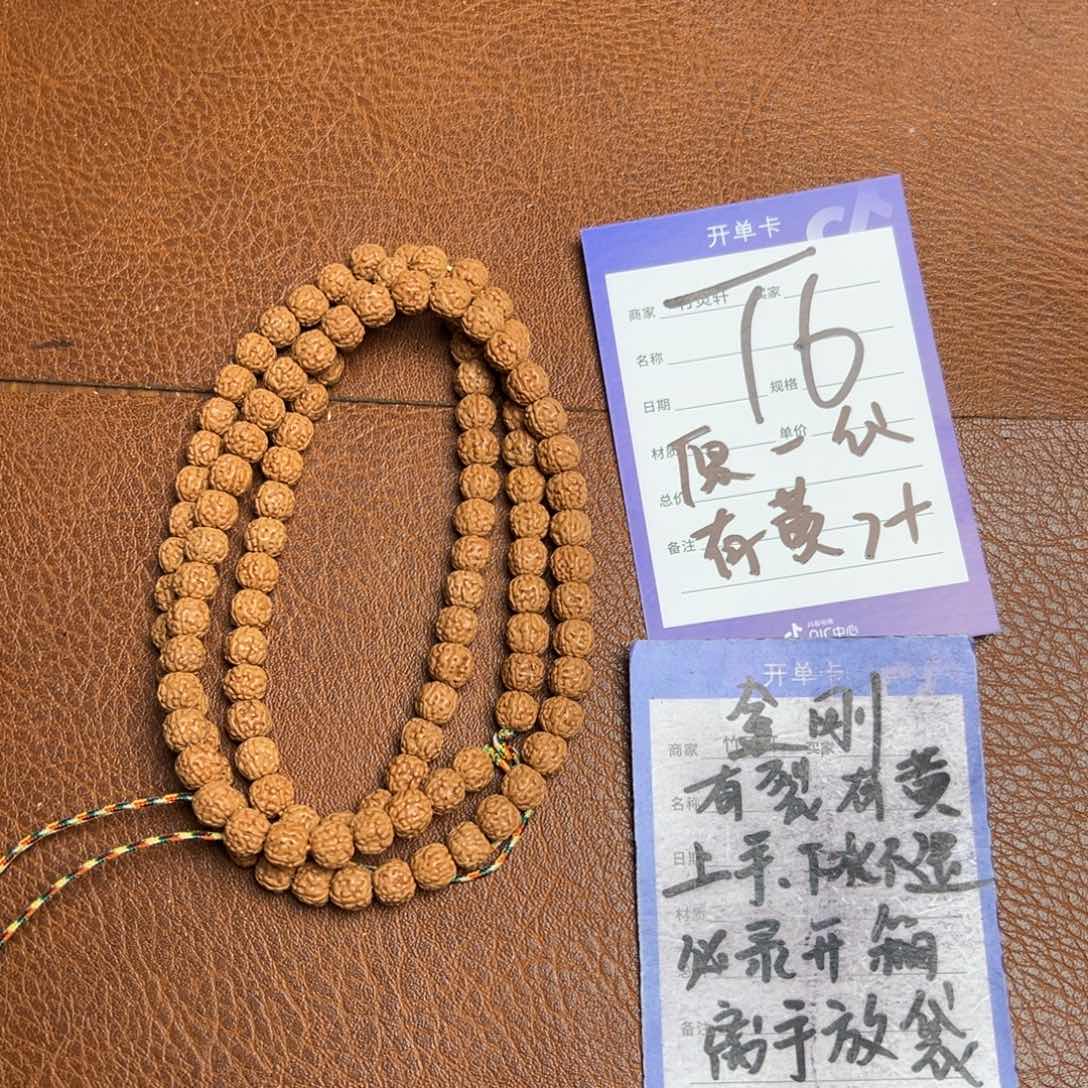 开单卡
商家 竹 轩 买家
T6
名称
日期 规格
原一代
材质 单价
总价
有黄 7+
备注
抖音电商
QIC中心
开单卡
金刚
商家 竹 轩 买家
有裂有黄
名称
上手、下水不退
日期
材质
必录开箱
备注
离手放袋